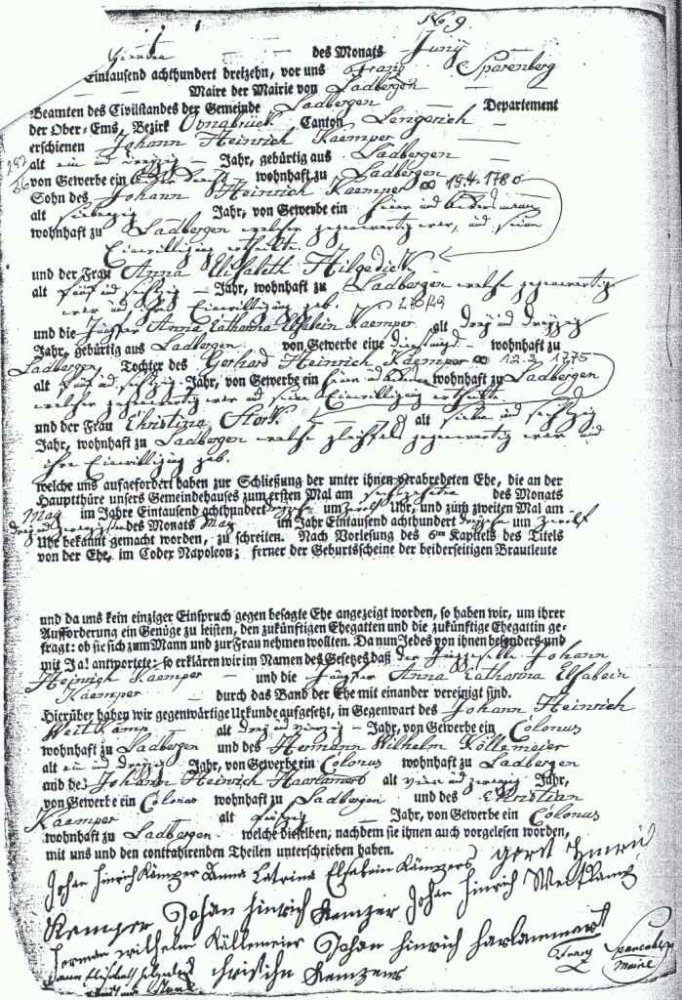 No. 9.
des Monats Juny
Eintausend achthundert dreizehn, vor uns Franz Sparenberg
Maire der Mairie von Ladbergen
Beamten des Civilstandes der Gemeinde Ladbergen Departement
der Ober-Ems, Bezirk Osnabrück Canton Lengerich
erschienen Johann Heinrich Kaemper
alt ein und Jahr, gebürtig aus Ladbergen
von Gewerbe ein wohnhaft zu Ladbergen
Sohn des Johann Heinrich Kaemper ∞ 19.4.1780
alt siebenzig Jahr, von Gewerbe ein
wohnhaft zu Ladbergen welcher gegenwertig war, und seine
Einwilligung ertheilte.
und der Frau Anna Elisabeth Hilgedieck
alt fünf und sechzig Jahr, wohnhaft zu Ladbergen welche gegenwertig
war und ihre Einwilligung gab.
und die Jungfer Anna Catharina Elsabein Kaemper alt drey und dreyzig
Jahr, gebürtig aus Ladbergen von Gewerbe eine wohnhaft zu
Ladbergen, Tochter des Gerhard Heinrich Kaemper ∞ 12.2.1775
alt fünf und sechzig Jahr, von Gewerbe ein wohnhaft zu Ladbergen
welcher gegenwertig war und seine Einwilligung ertheilte.
und der Frau Christina Stork alt sieben und sechzig
Jahr, wohnhaft zu Ladbergen welche gleichfals gegenwertig war und
ihre Einwilligung gab.
welche uns aufgefordert haben zur Schließung der unter ihnen verabredeten Ehe, die an der
Hauptthüre unsers Gemeindehauses zum ersten Mal am des Monats
May im Jahre Eintausend achthundert dreyzehn um zwölf Uhr, und zum zweiten Mal am
drey und zwanzigsten des Monats May im Jahr Eintausend achthundert dreyzehn um zwölf
Uhr bekannt gemacht worden, zu schreiten. Nach Vorlesung des 6ten Kapitels des Titels
von der Ehe, im Codex Napoleon; ferner der Geburtsscheine der beiderseitigen Brautleute
und da uns kein einziger Einspruch gegen besagte Ehe angezeigt worden, so haben wir, um ihrer
Aufforderung ein Genüge zu leisten, den zukünftigen Ehegatten und die zukünftige Ehegattin ge-
fragt: ob sie sich zum Mann und zur Frau nehmen wollten. Da nun Jedes von ihnen besonders und
mit Ja! antwortete; so erklären wir im Namen des Gesetzes daß der Junggeselle Johann
Heinrich Kaemper und die Jungfer Anna Catharina Elsabein
Kaemper durch das Band der Ehe mit einander vereinigt sind.
Hierüber haben wir gegenwärtige Urkunde aufgesetzt, in Gegenwart des Johann Heinrich
Weitkamp alt drey und vierzig Jahr, von Gewerbe ein Colonus
wohnhaft zu Ladbergen und des Hermann Wilhelm Köllemeier
alt ein und dreizig Jahr, von Gewerbe ein Colonus wohnhaft zu Ladbergen
und des Johann Heinrich Haarlamert alt vier und zwanzig Jahr,
von Gewerbe ein Colonus wohnhaft zu Ladbergen und des Christian
Kaemper alt Jahr, von Gewerbe ein Colonus
wohnhaft zu Ladbergen welche dieselben; nachdem sie ihnen auch vorgelesen worden,
mit uns und den contrahirenden Theilen unterschrieben haben.
Johan Hinrich Kämper Anna Catrina Elsabein Kämpers gerd hinrich
Kemper Johan hinrich Kemper Johan Hinrich Weitkamp
Herman wilhelm Källemeier Johan hinrich harlammert
christihn Kempers Franz Sparenberg
Maire